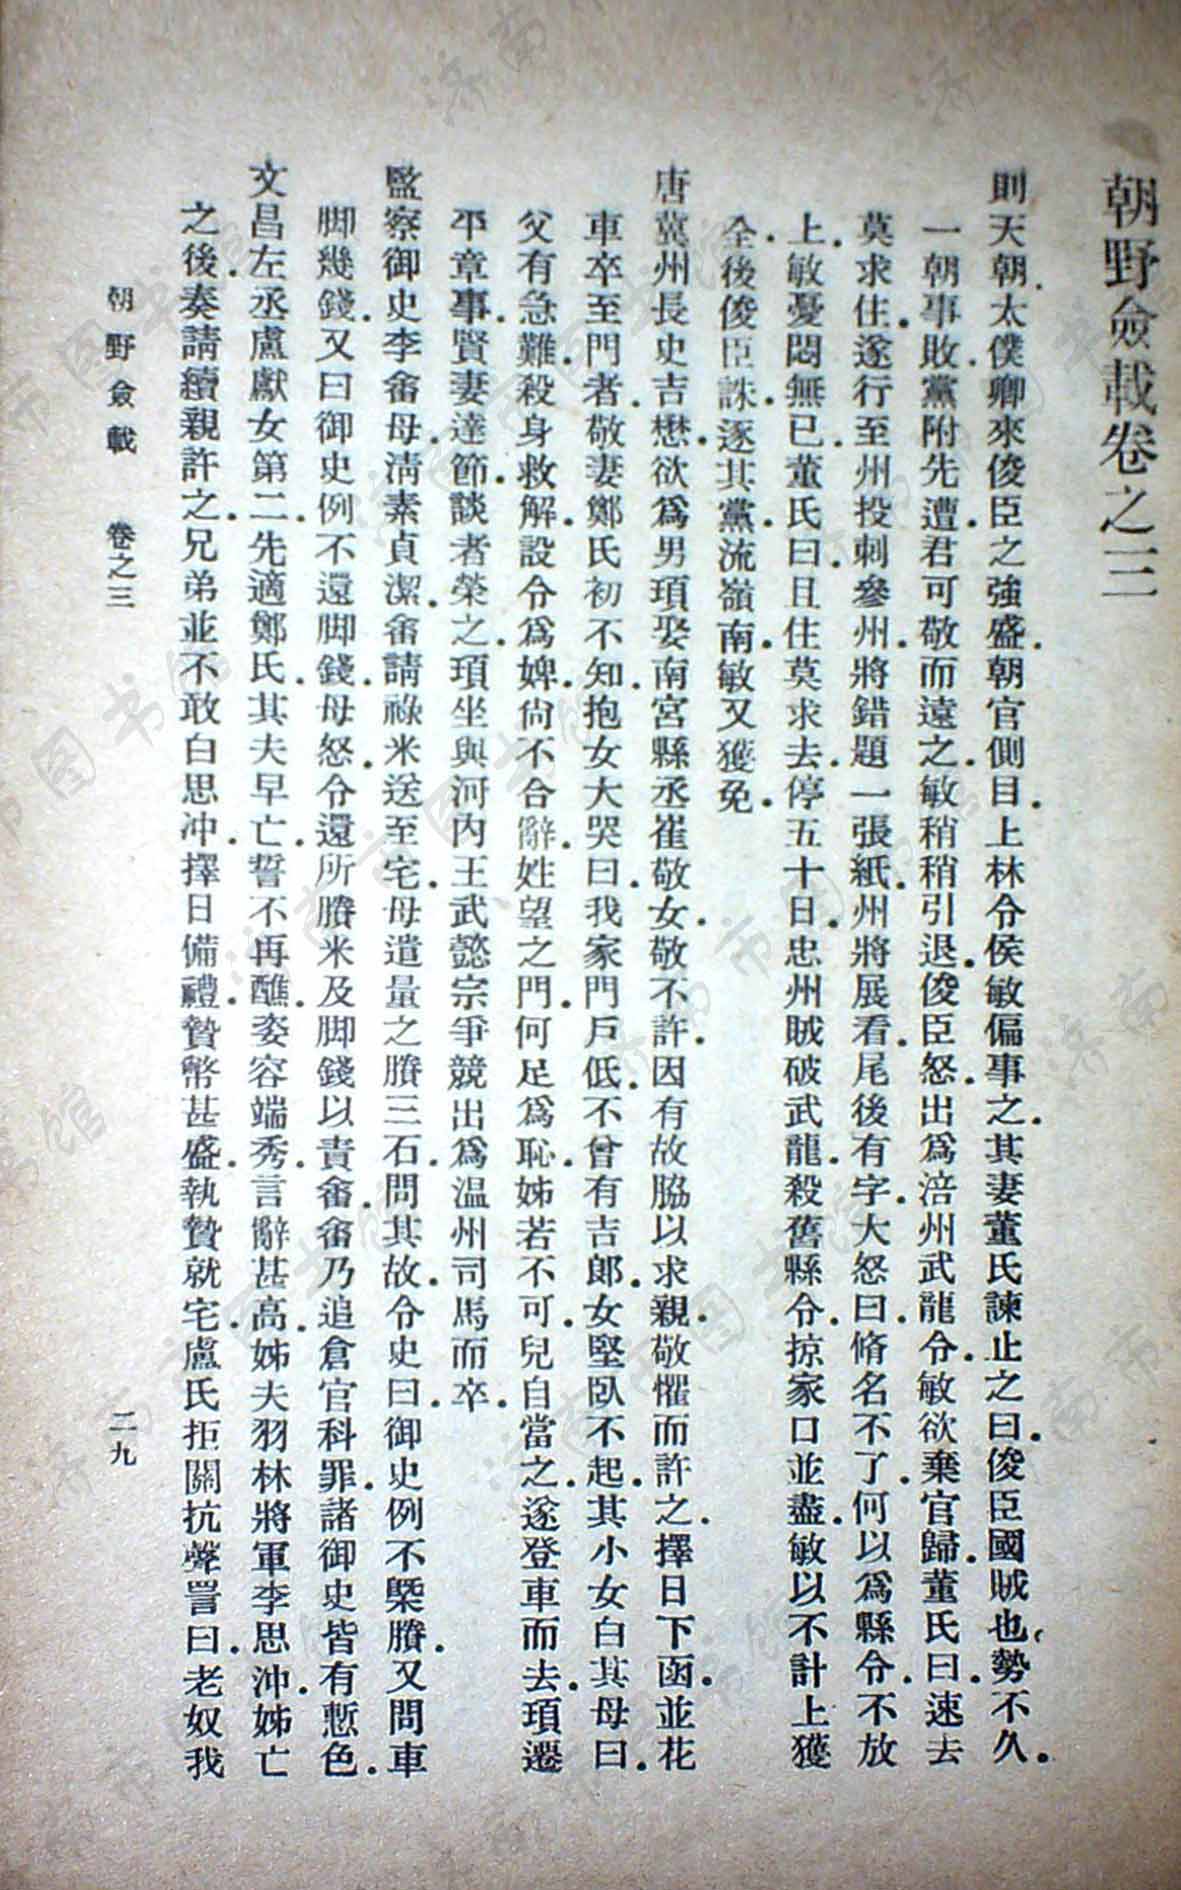 朝野僉載卷之三
則天朝太僕卿來俊臣之強盛朝官側目上林令侯敏偏事之其妻董氏諫止之曰俊臣國賊也勢不久
一朝事敗黨附先遭君可敬而遠之敏稍稍引退俊臣怒出爲涪州武龍令敏欲棄官歸董氏曰速去
莫求住遂行至州投刺參州將錯題一張紙州將展看尾後有字大怒曰脩名不了何以爲縣令不放
上敏憂悶無已董氏曰且住莫求去停五十日忠州賊破武龍殺舊縣令掠家口並盡敏以不計上獲
全後俊臣誅逐其黨流嶺南敏又獲免
唐冀州長史吉懋欲爲男頊娶南宮縣丞崔敬女敬不許因有故脇以求親敬懼而許之擇日下函並花
車卒至門者敬妻鄭氏初不知抱女大哭曰我家門戶低不曾有吉郎女堅臥不起其小女白其母曰
父有急難殺身救解設令爲婢尙不合辭姓望之門何足爲恥姊若不可兒自當之遂登車而去頊遷
平章事賢妻達節談者榮之頊坐與河內王武懿宗爭競出爲温州司馬而卒
監察御史李畬母清素貞潔畬請祿米送至宅母遣量之賸三石問其故令史曰御史例不槩賸又問車
脚幾錢又曰御史例不還脚錢母怒令還所賸米及脚錢以責畬畬乃追倉官科罪諸御史皆有慙色
文昌左丞盧獻女第二先適鄭氏其夫早亡誓不再醮姿容端秀言辭甚高姊夫羽林將軍李思沖姊亡
之後奏請續親許之兄弟並不敢白思冲擇日備禮贄幣甚盛執贄就宅盧氏拒關抗聲詈曰老奴我
朝野僉載 卷之三 二九
济南市图书馆